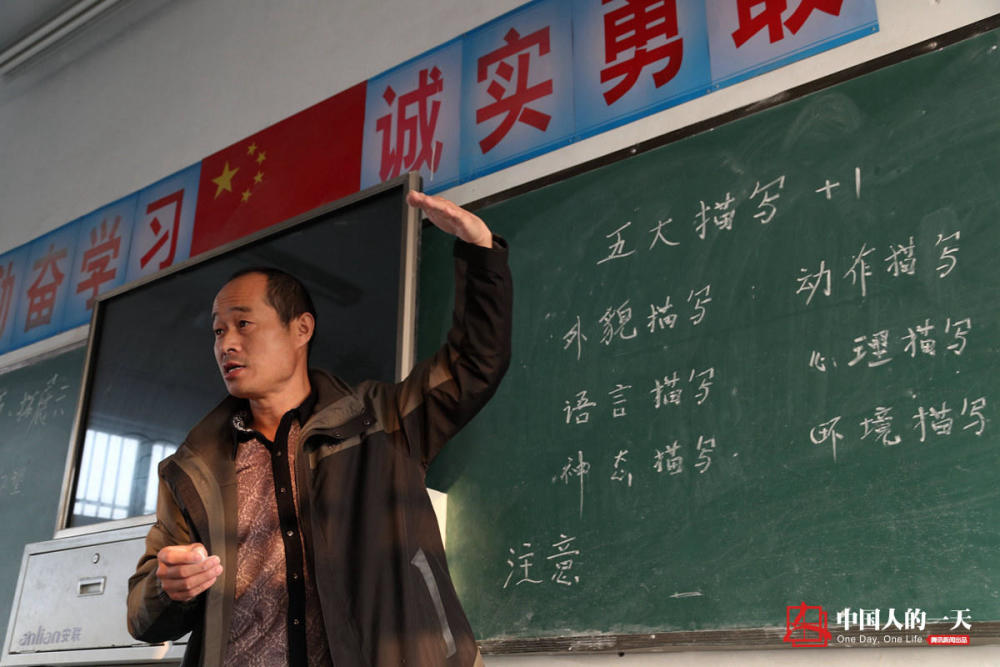 奋学习
诚实勇敢
五大描写 +1
外貌描写
动作描写
语言描写
心理描写
神态描写.
环境描写
注意
anlian安联
中国人的一天
One Day, One Life
腾讯新闻出品